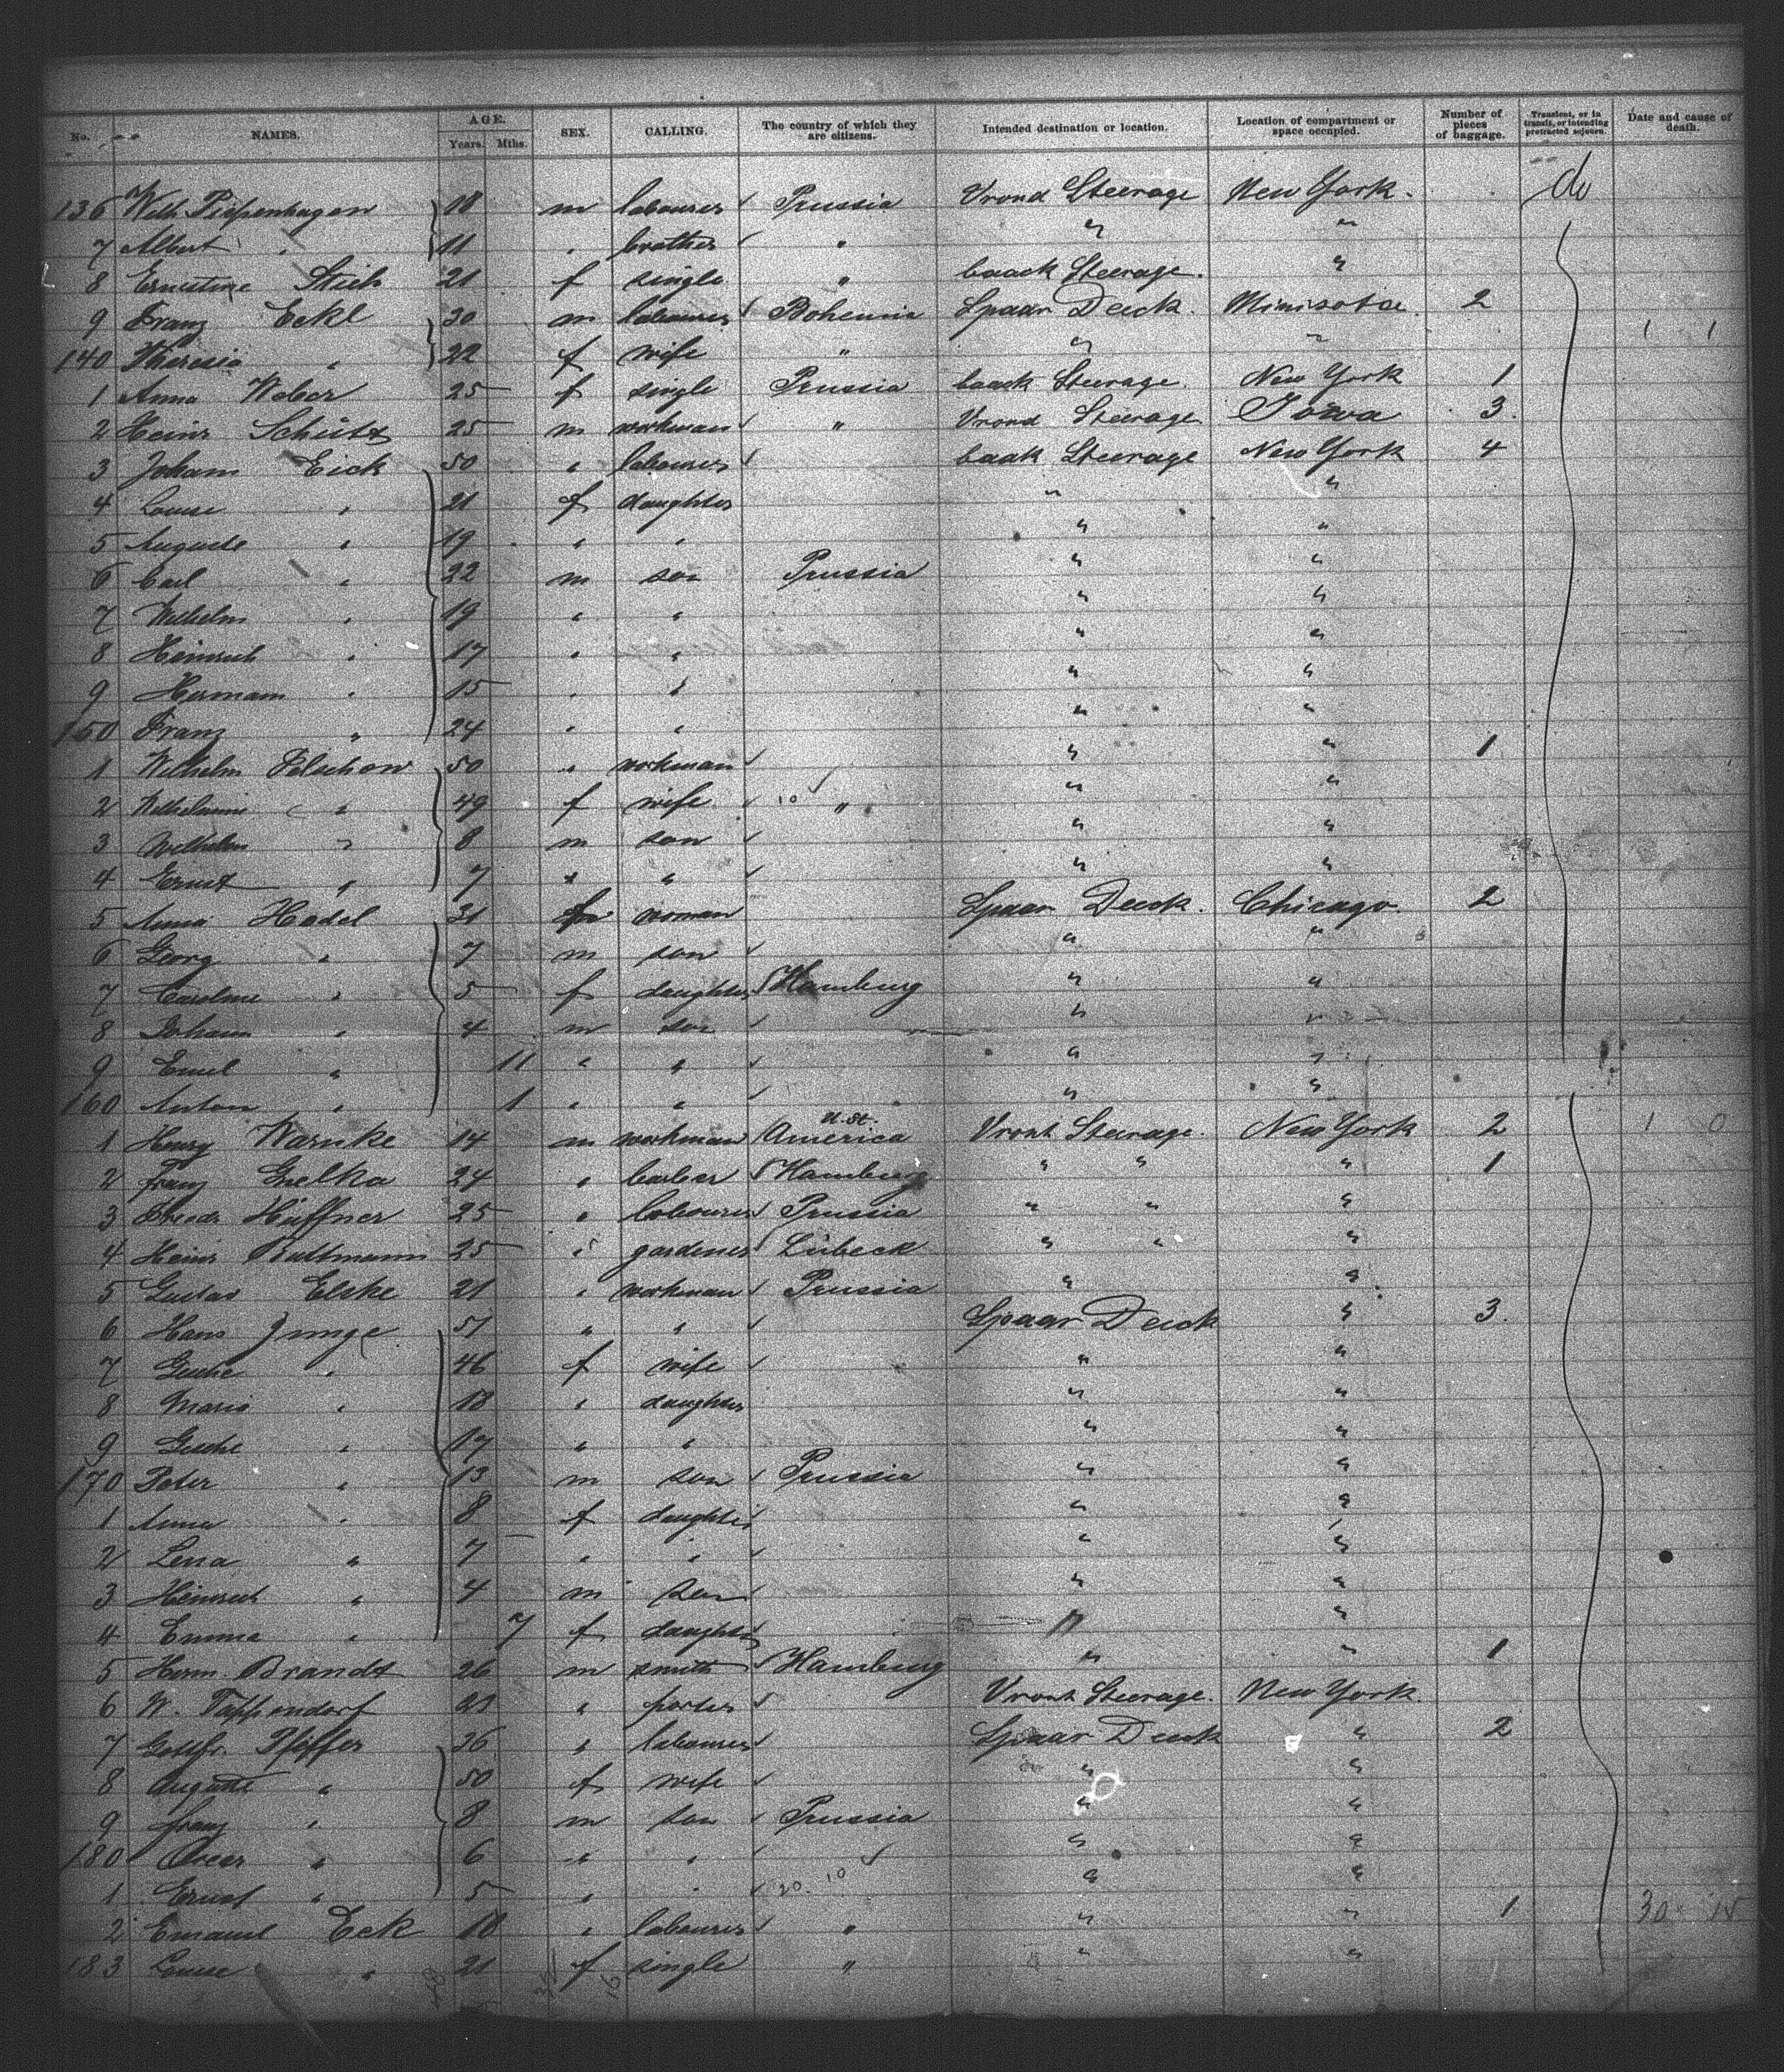 No. NAMES. AGE. Years. Mths. SEX. CALLING. The country of which they are citizens. Intended destination or location. Location of compartment or space occupied. Number of pieces of baggage. Transient, or in transit, or intending protracted sojourn. Date and cause of death.
136 Wilh. Piepenhagen 18 m labourer Prussia Vrond Steerage New York. do
7 Albert " 11 " brother " " "
8 Ernestine Stieh 21 f single " baack Steerage. "
9 Franz Eckl 30 m labourer Bohemia Spaar Deck. Minisota. 2
140 Theresia " 22 f wife " " " 1 1
1 Anna Weber 25 f single Prussia baack Steerage. New York 1
2 Heinr Schütz 25 m workman " Vrond Steerage. Iowa 3.
3 Joham Eick 50 " labourer baak Steerage New York 4
4 Louise " 21 f daughter " "
5 Auguste " 19 " " " "
6 Carl " 22 m son Prussia " "
7 Wilhelm " 19 " " " "
8 Heinrich " 17 " " " "
9 Hermann " 15 " " " "
150 Franz " 24 " " " "
1 Wilhelm 50 " workman " " 1
2 Wilhelmine " 49 f wife 10 " " "
3 Wilhelm " 8 m son " "
4 Ernst " 7 " " " "
5 Anna Hadel 31 woman Spaar Deck. Chicago. 2
6 Georg " 7 m son " "
7 Caroline " 5 f daughter Hamburg " "
8 Johann " 4 m son " "
9 Emil " 11 " " " "
160 Anton " 1 " " " "
1 Henry Warnke 14 m workman U. St. America Vront Steerage. New York 2 1 0
2 Franz Grelka 24 " barber Hamburg " " " 1
3 Hüffner 25 " labourer Prussia " " "
4 Heinr Rultmann 25 " gardener Lübeck " " "
5 Gustav Elske 21 " workman Prussia " "
6 Hans Junge 51 " " Spaar Deck " 3.
7 Gesche " 46 f wife " "
8 Maria " 18 " daughter " "
9 Gesche " 17 " " " "
170 Peter " 13 m son Prussia " "
1 Anna " 8 f daughter " "
2 Lena " 7 " " " "
3 Heinrich " 4 m son " "
4 Emma " 7 f daughter " "
5 Herm. Brandt 26 m smith Hamburg " " 1
6 W. Tappendorf 21 " porter Vront Steerage. New York.
7 Gottfr. Pfeiffer 36 " labourer Spaar Deck " 2
8 Auguste " 50 f wife " "
9 Franz " 8 m son Prussia " "
180 Oscar " 6 " " " "
1 Ernst " 5 " " 20. 10 " "
2 Emanuel Eck 18 " labourer " " " 1 30 15
183 Louise " 21 f single " " "